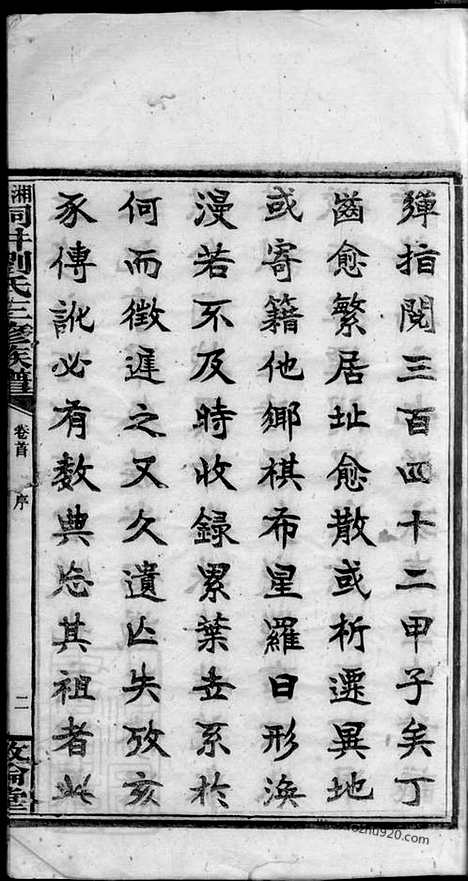 彈指閱三百四十二甲子矣丁
齒愈繁居址愈散或析遷異地
或寄籍他鄉棋布星羅日形渙
漫若不及時收録累葉世系於
何而徵遲之又久遺亾失攷亥
豕傳訛必有数典忘其祖者此
湘洞井劉氏三修族譜
卷首
序
二
敦倫堂
zhu920.com